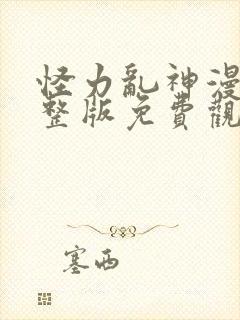 怪力亂神漫
整版免費觀
塞西